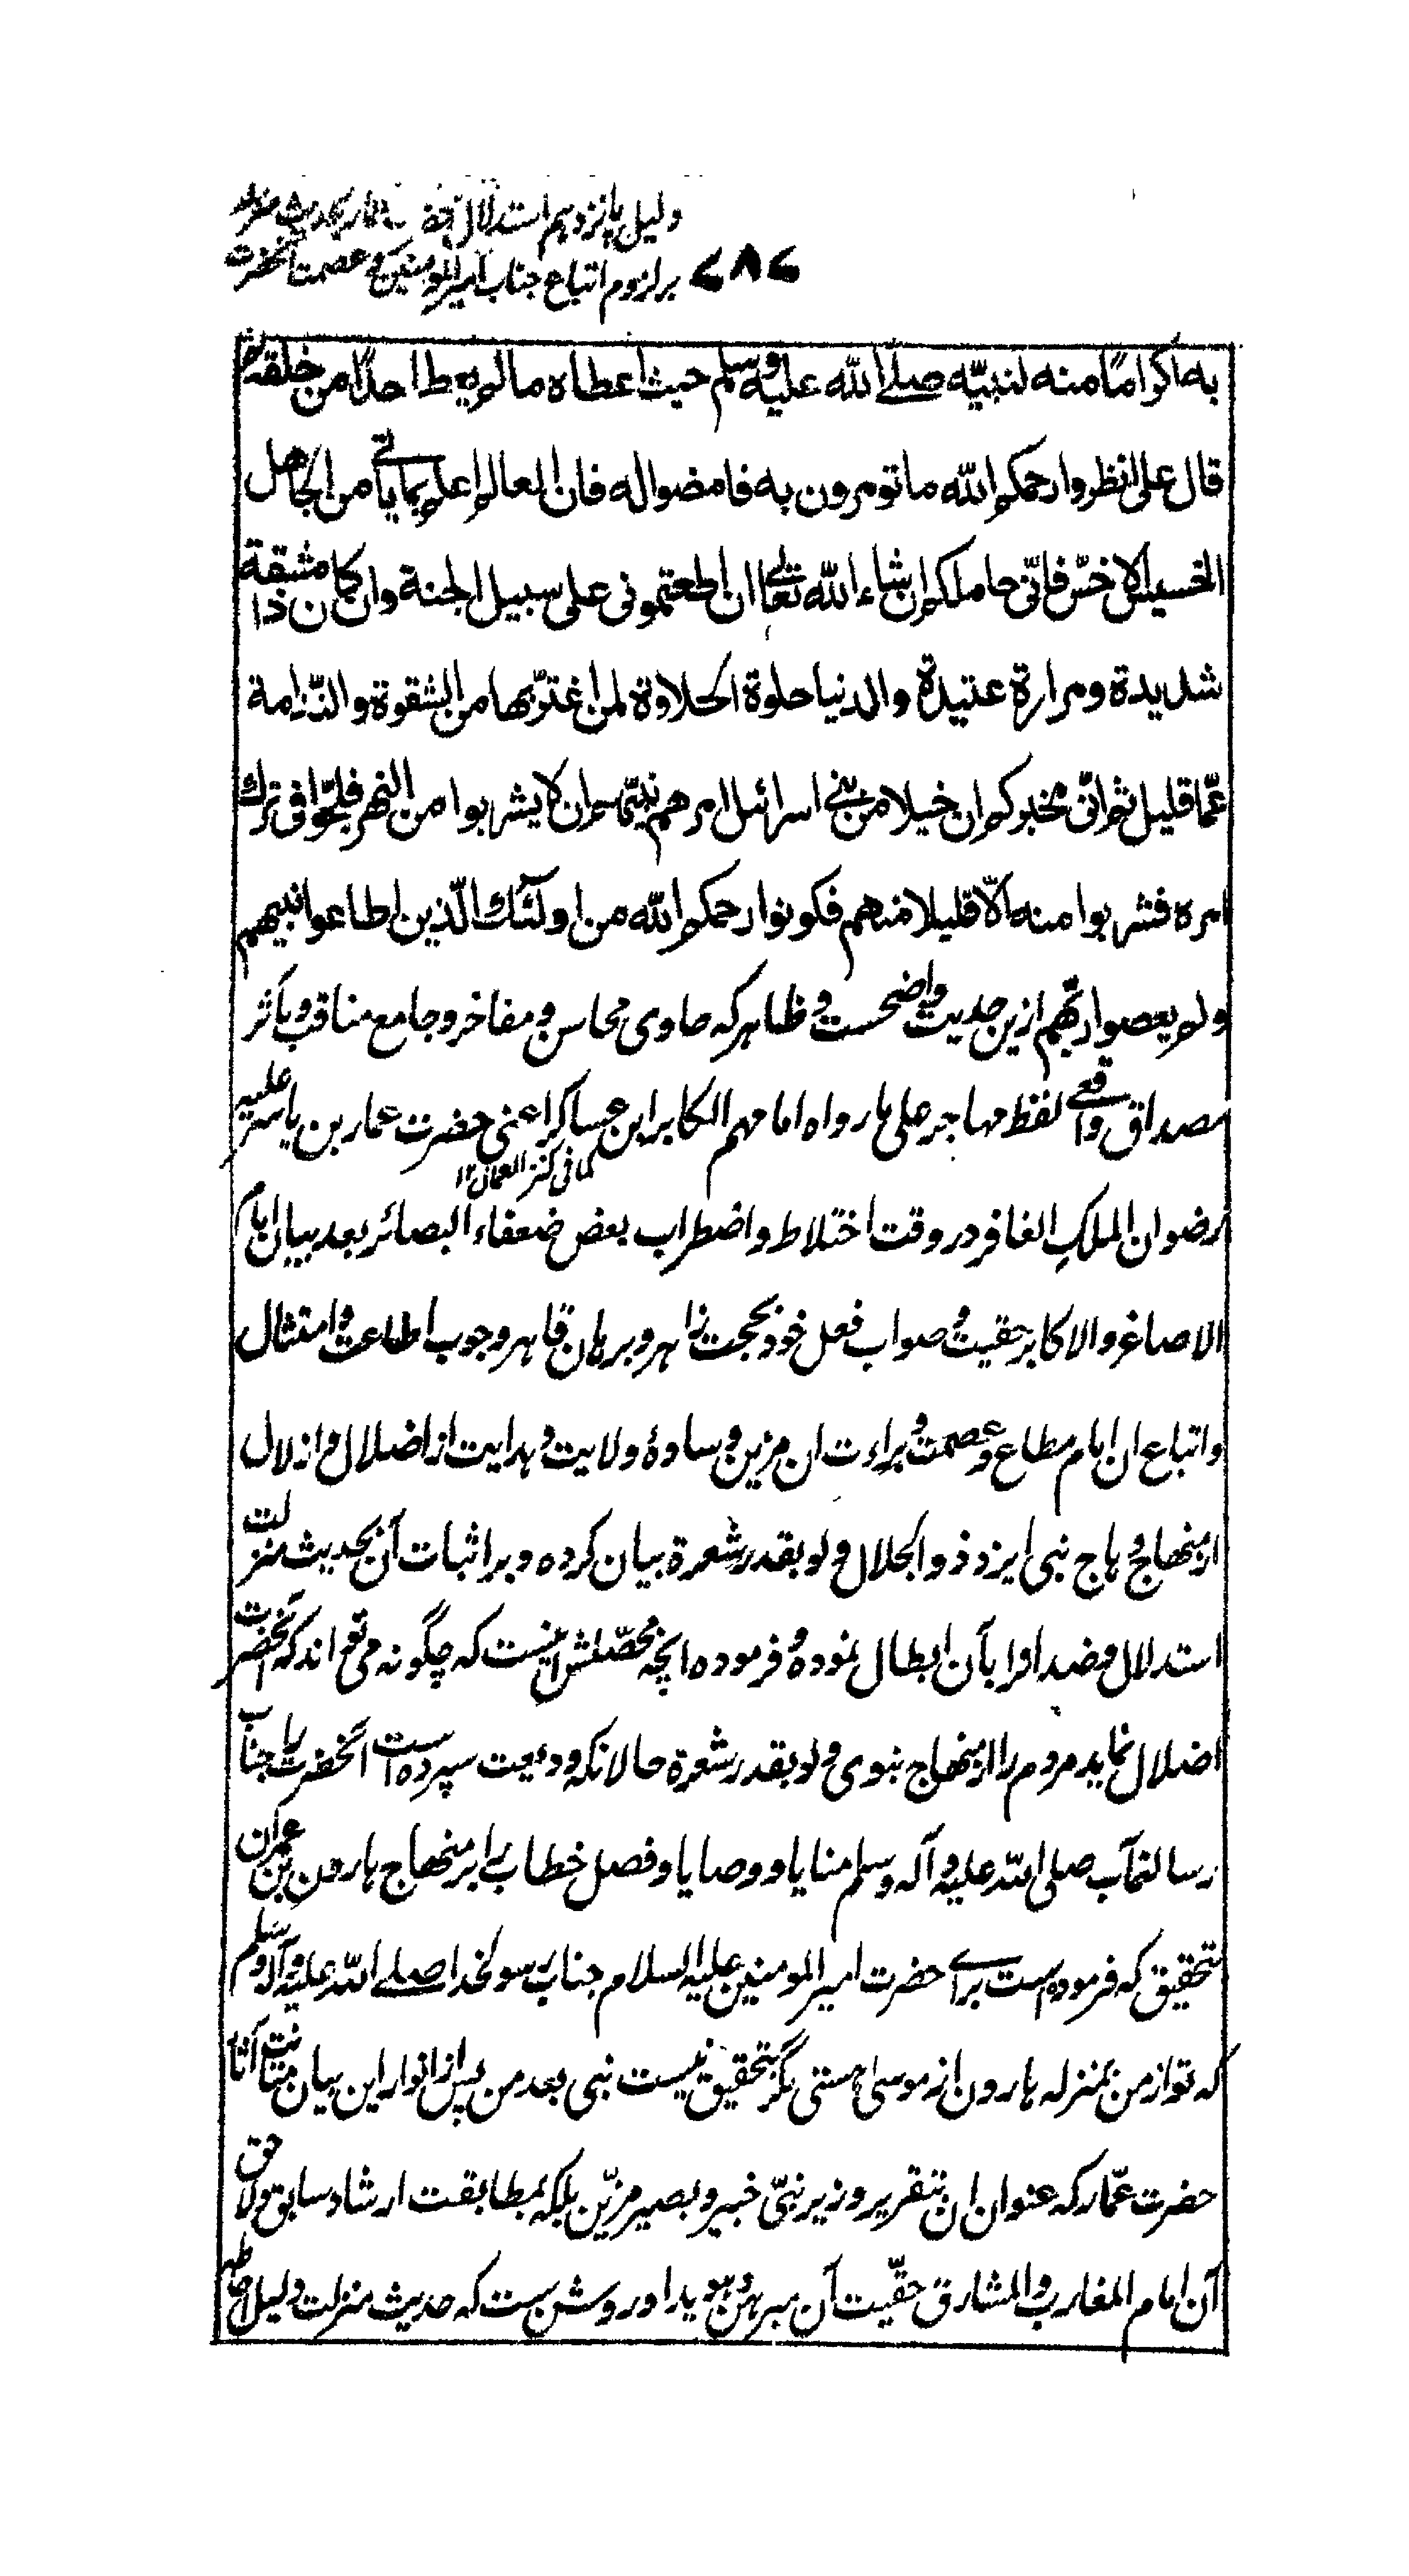 دلیل پانزدهم استدلال حضرت عمار بحدیث منزلت
بر لزوم اتباع جناب امیرالمومنین و عصمت آنحضرت
۷۸۷
به اکراما منه لنبیّه صلے الله علیه وسلم حیث اعطاه ما لم یعط احدا من خلقه ثم
قال علی انظروا رحمکم الله ما تومرون به فامضوا له فان العالم اعلم بما یاتے من الجاهل
الخسیس الاخسّ فانّی حاملکم ان شاء الله تعالے ان اطعتمونی علی سبیل الجنة وان کان ذا مشقة
شدیدة ومرارة عتیدة والدنیا حلوة الحلاوة لمن اغترّ بها من الشقوة والنّدامة
عمّا قلیل ثم انّی مخبرکم ان خیلا من بنے اسرائیل امرهم نبیّهم ان لا یشربوا من النهر فلجّوا فی ترک
امره فشربوا منه الّا قلیلا منهم فکونوا رحمکم الله من اولئک الّذین اطاعوا نبیهم
ولم یعصوا ربّهم ازین حدیث واضحست و ظاهر که حاوی محاسن و مفاخر و جامع مناقب و مآثر
مصداق واقعے لفظ مهاجر علی ما رواه امامهم الکابر ابن عساکر اعنی حضرت عمار بن یاسر علیه
کما فی کنز العمال ۱۲
رضوان الملک الغافر در وقت اختلاط و اضطراب بعض ضعفاء البصائر بعد بیان امام
الاصاغر والاکابر حقیت و صواب فعل خود بحجت زاهر و برهان قاهر وجوب اطاعت و امتثال
واتباع ان امام مطاع و عصمت و براءت ان مزین وسادهٔ ولایت و هدایت از اضلال و ازلال
از منهاج و هاج نبی ایزد ذو الجلال و لو بقدر شعرة بیان کرده و بر اثبات آن بحدیث منزلت
استدلال و ضد اورا بآن ابطال نموده و فرموده انچه محصّلش اینست که چگونه می تواند که آنحضرت
اضلال نماید مردم را از منهاج نبوی و لو بقدر شعرة حالانکه ودیعت سپرده است انحضرت را جناب
رسالتمآب صلی الله علیه و آله وسلم منایا و وصایا و فصل خطاب را بر منهاج هارون بن عمران
بتحقیق که فرموده است براے حضرت امیر المومنین علیه السلام جناب رسولخدا صلے الله علیه وآله وسلم
که تو از من بمنزله هارون از موسیٰ هستی مگر بتحقیق نیست نبی بعد من پس از انوار این بیان متانت آثار
حضرت عمّار که عنوان ان بتقریر وزیر نبیّ خبیر و بصیر مزیّن بلکه بمطابقت ارشاد سابق ولاحق
آن امام المغارب والمشارق حقّیت آن مبرهن هویدا و روشن ست که حدیث منزلت دلیل